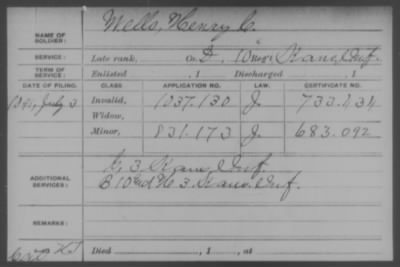 NAME OF SOLDIER: Wells, Henry C.
SERVICE: Late rank, Co. D, 10 Reg't Kans. Inf.
TERM OF SERVICE: Enlisted , 1 Discharged , 1
DATE OF FILING. CLASS APPLICATION NO. LAW. CERTIFICATE NO.
1891, July 3 Invalid, 1037.130 J. 733.434
Widow,
Minor, 831.173 J. 683.092
ADDITIONAL SERVICES: G. 3. Kans. Inf.
B 10 3. Kans. Inf.
REMARKS:
Died , 1 , at